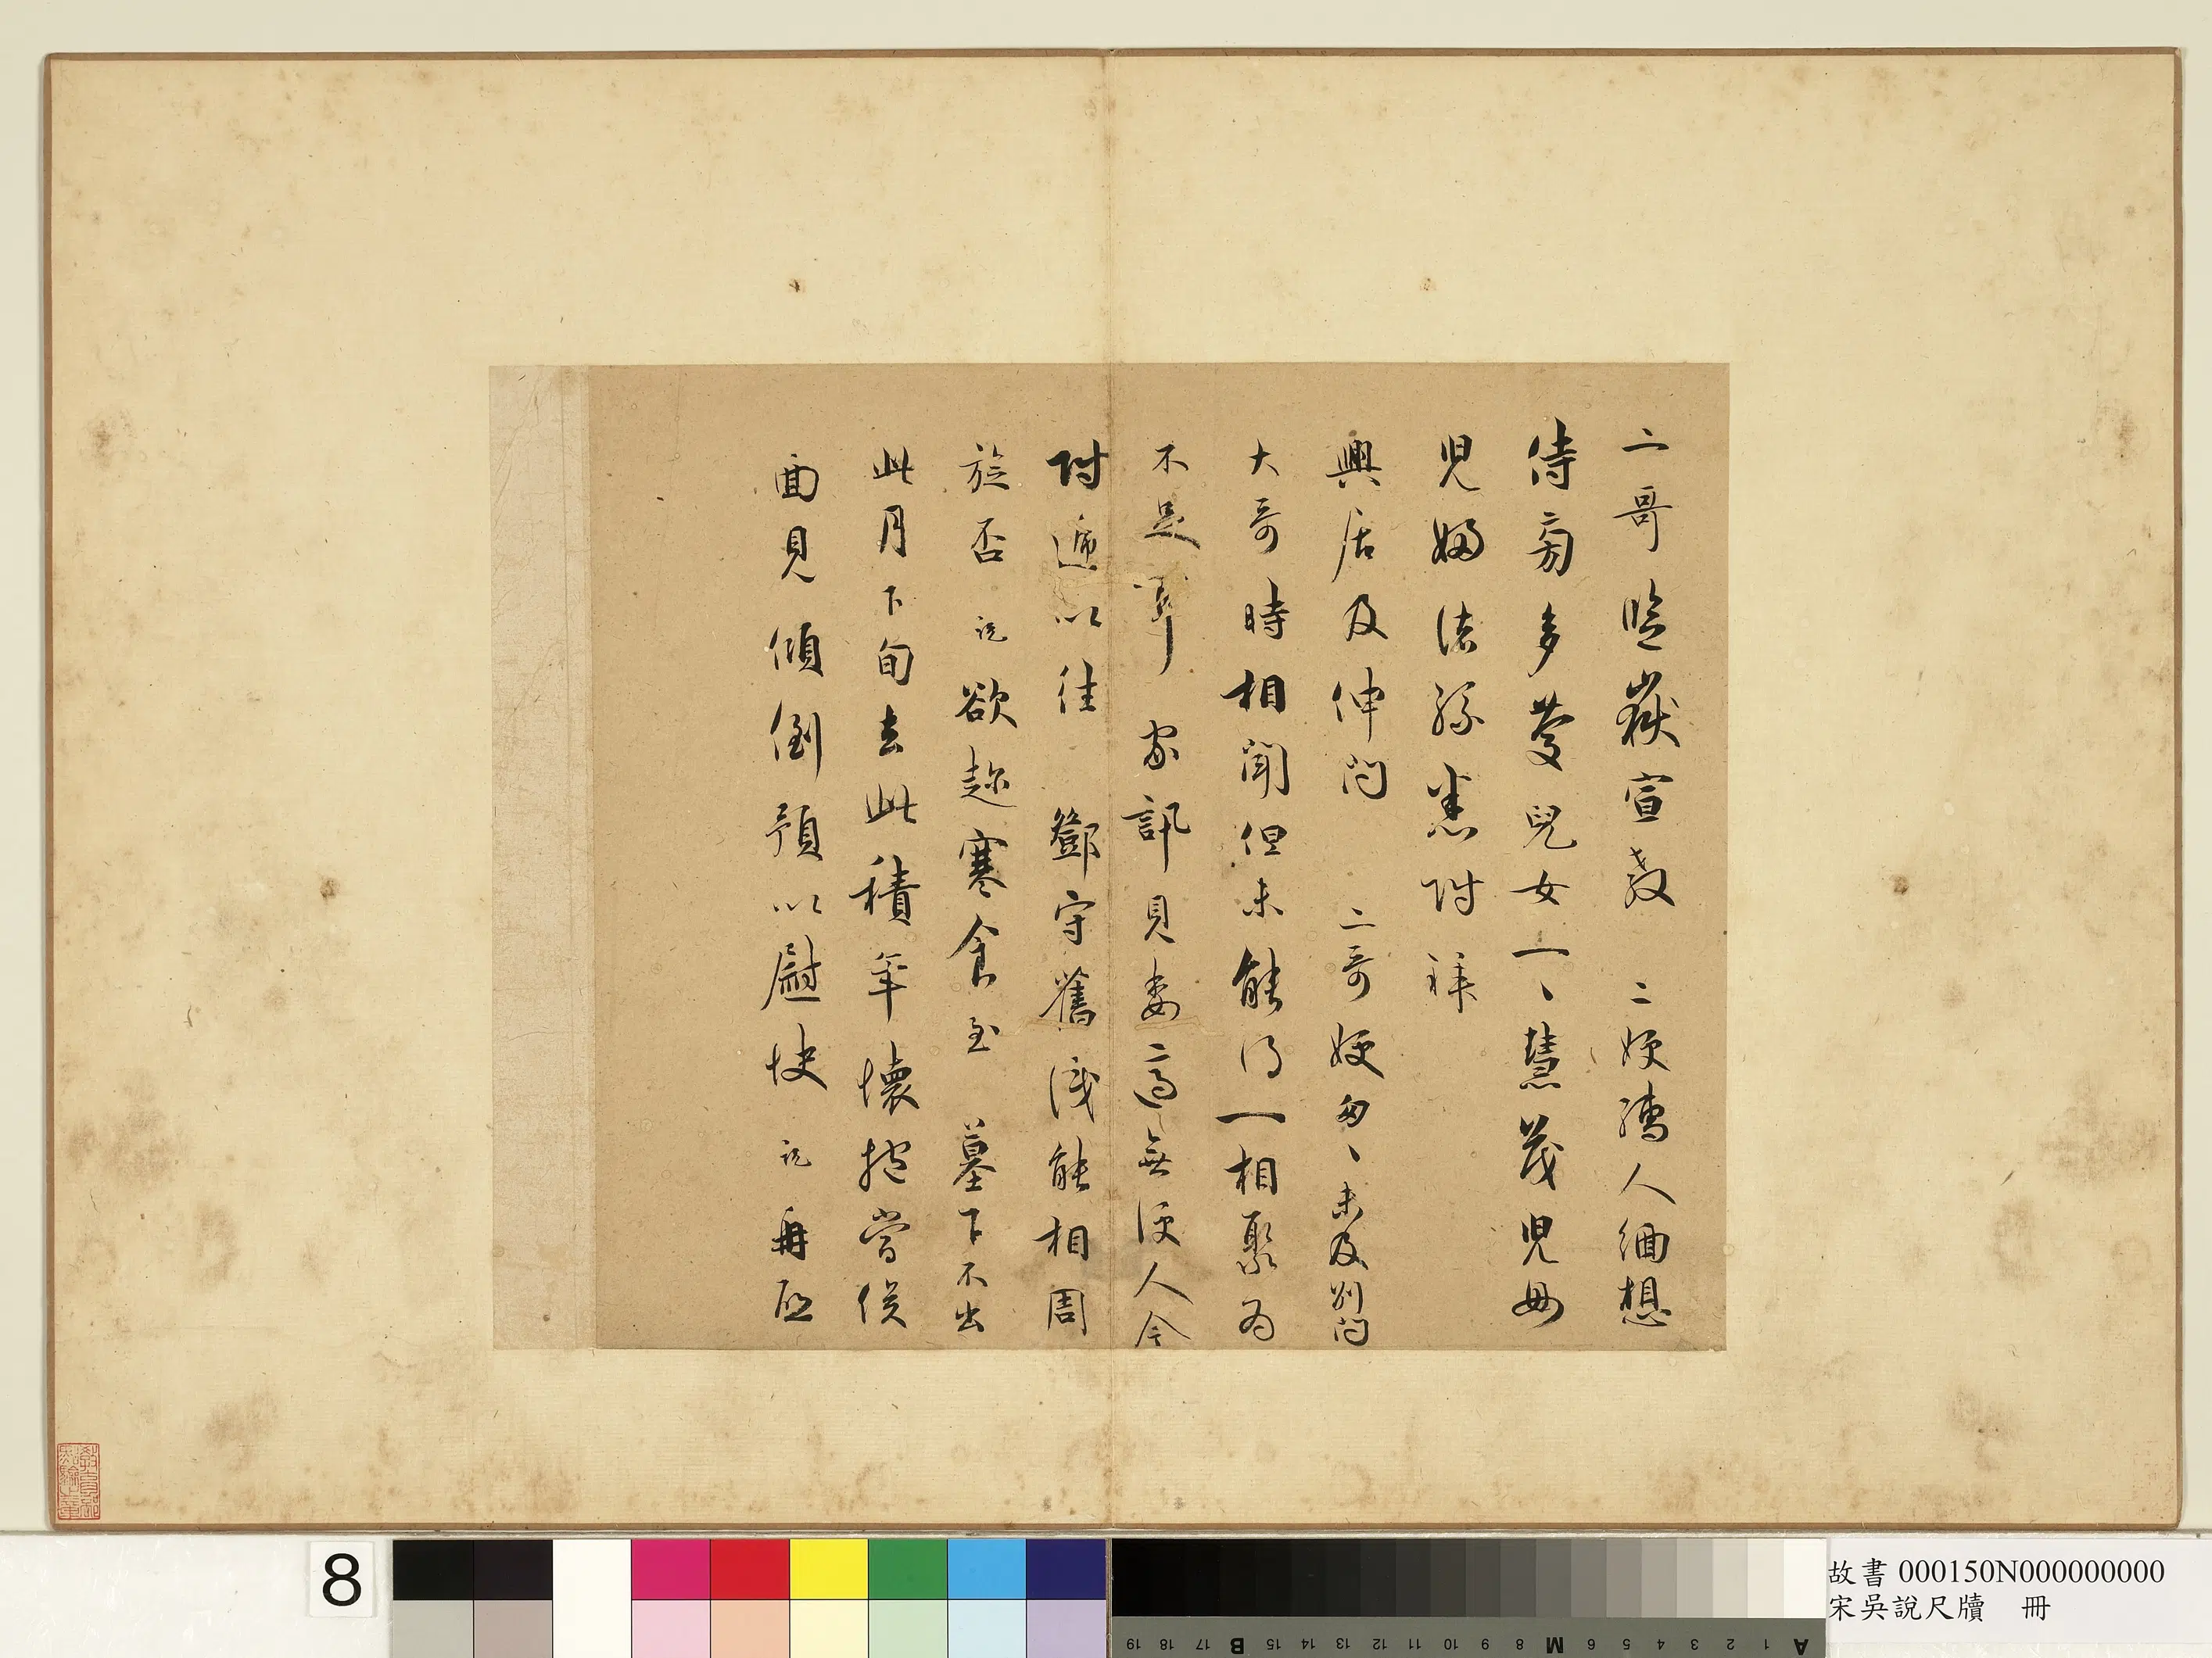 二哥監嶽宣教 二嫂孺人緬想
侍旁多慶兒女一、慧茂兒母
兒婦法孫悉附拜
興居及伸問 二哥嫂匆、未及別問
大哥時相聞但未能得一相聚為
不足耳 家訊見委適無便人今
附遞以往 鄧守舊識能相周
旋否 說欲趁寒食至 墓下不出
此月下旬去此積年懷抱當俟
面見傾倒預以慰快 說再啟
8
故書 000150N000000000
宋吳說尺牘 冊
A 1 2 3 4 5 6 M 8 9 10 11 12 13 14 15 B 17 18 19